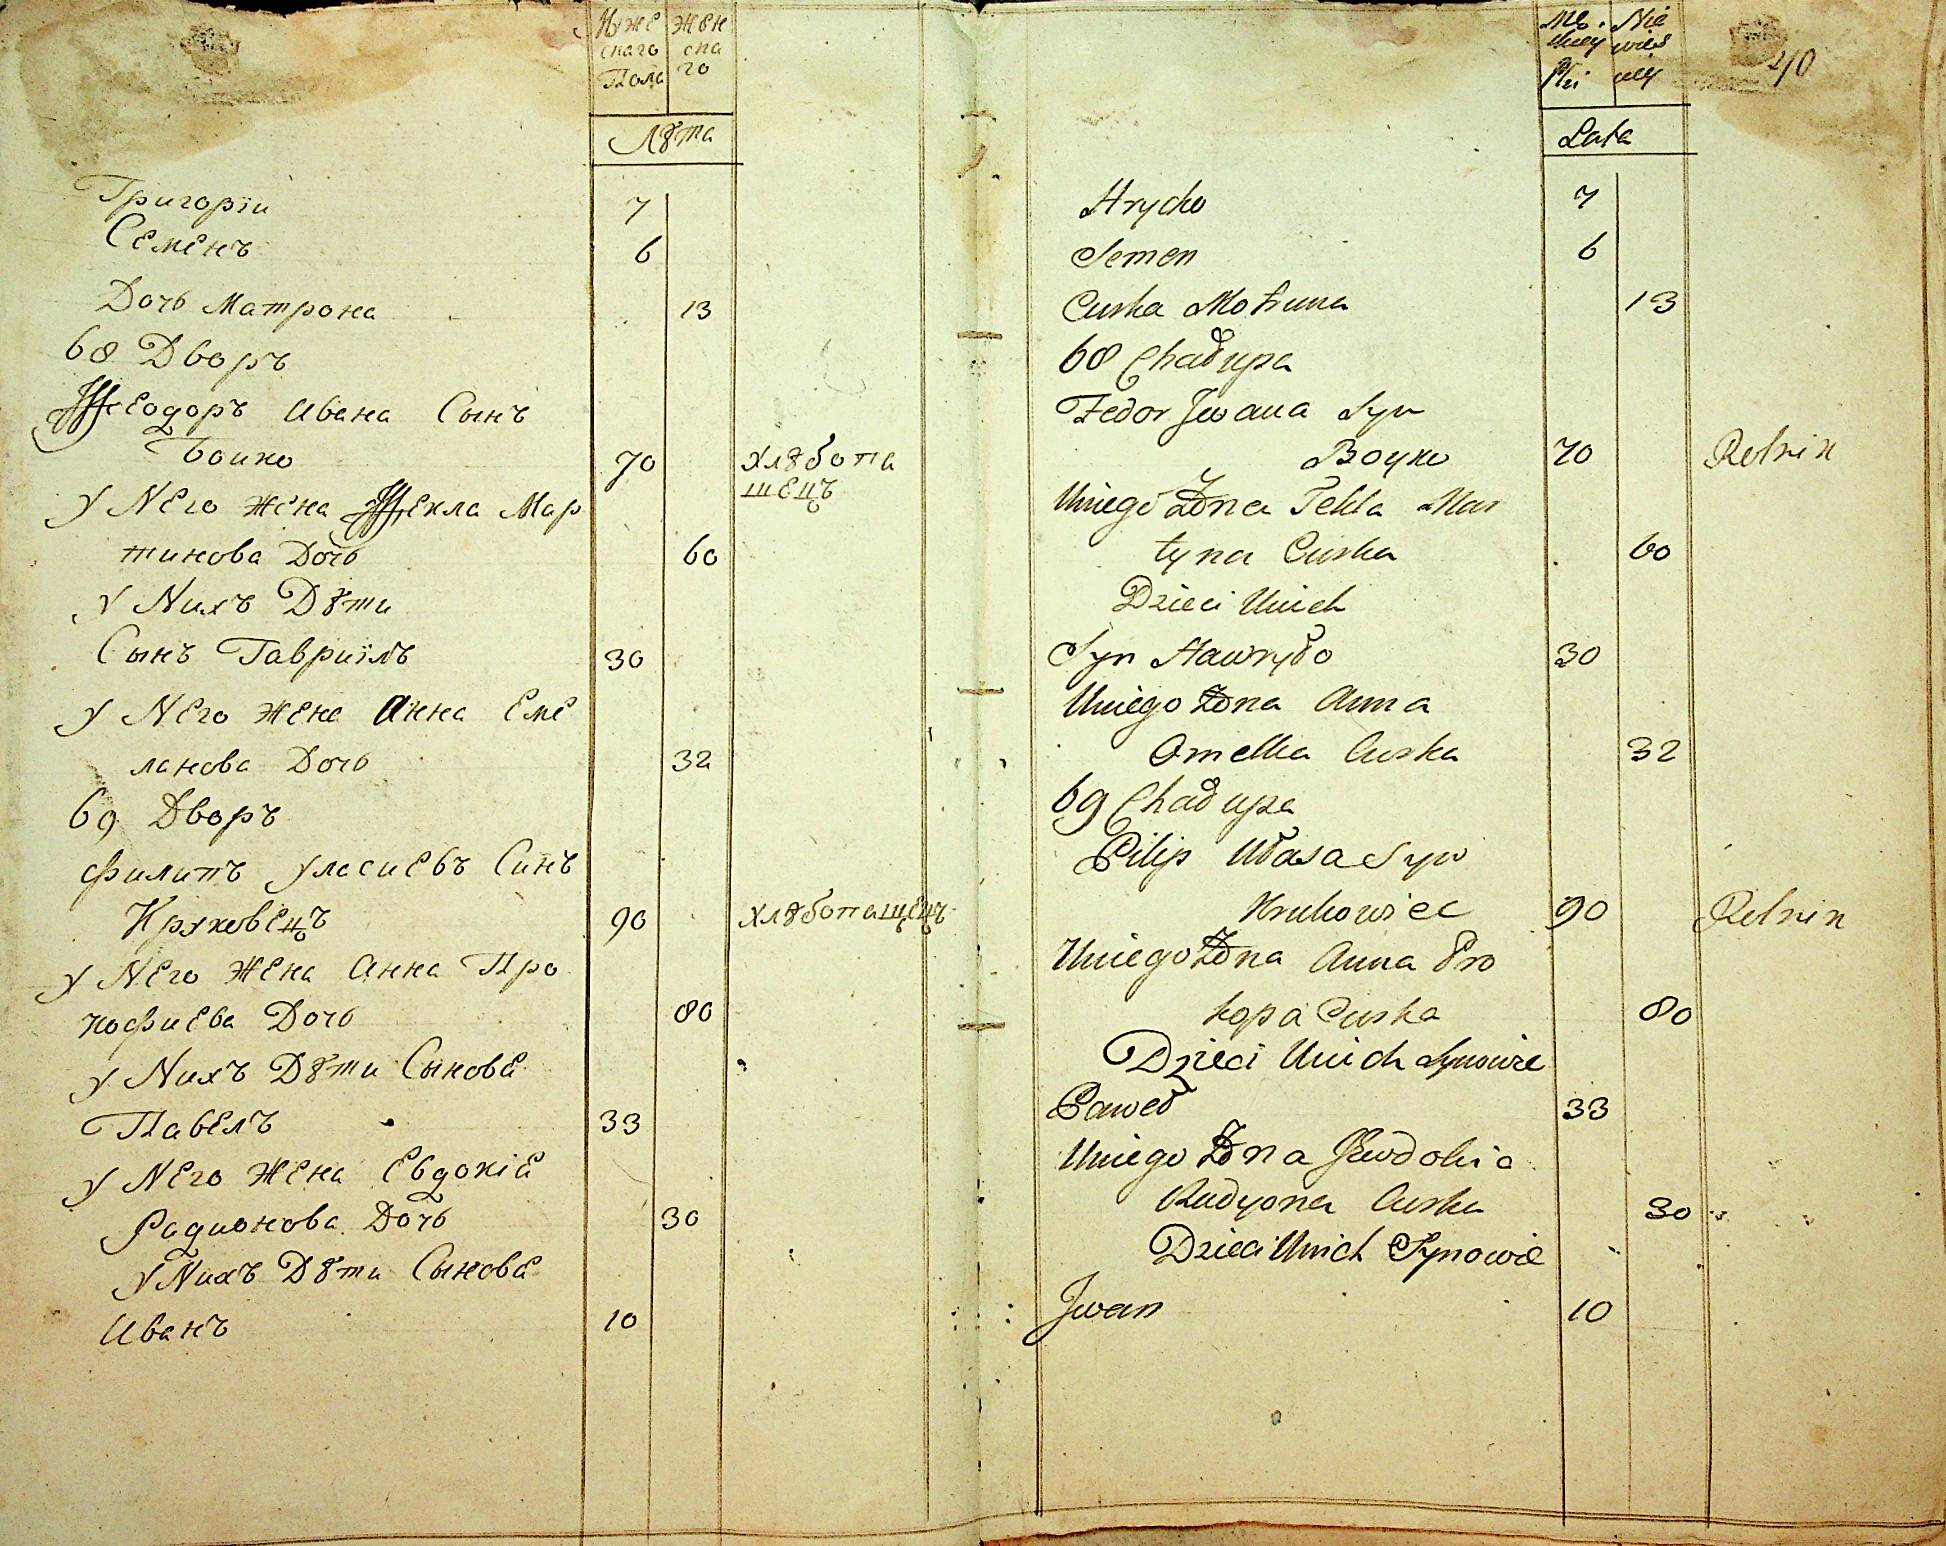 Муже Жен
скаго ска
Пола го
Лѣта
Григорїи 7
Семенъ 6
Дочь Матрона 13
68 Дворъ
Ѳеодоръ Ивана Сынъ
Боико 70 хлѣбопа
шецъ
У Него жена Ѳекла Мар
тинова Дочь 60
У Нихъ Дѣти
Сынъ Гавриїлъ 30
У Него жена Анна Еме
лянова Дочь 32
69 Дворъ
Филипъ Уласиевъ Синъ
Круковецъ 90 хлѣбопашецъ
У Него жена Анна Про
кофиева Дочь 80
У Нихъ Дѣти Сынове
Павелъ 33
У Него жена Евдокіе
Радионова Дочь 30
У Нихъ Дѣти Сынове
Иванъ 10
40
Lata
Hrycko 7
Semen 6
Curka Motruna 13
68 Chałupa
Fedor Jwana Syn
Boyko 70 Rolnik
Uniego Żona Tekla Mar
tyna Curka 60
Dzieci Unich
Syn Hawryło 30
Uniego Żona Anna
Omelka Curka 32
69 Chałupa
Pilip Ułasa Syn
Krukowiec 90 Rolnik
Uniego Żona Anna Pro
kopa Curka 80
Dzieci Unich Synowie
Paweł 33
Uniego Żona Jewdokia
Radyona Curka 30
Dzieci Unich Synowie
Jwan 10